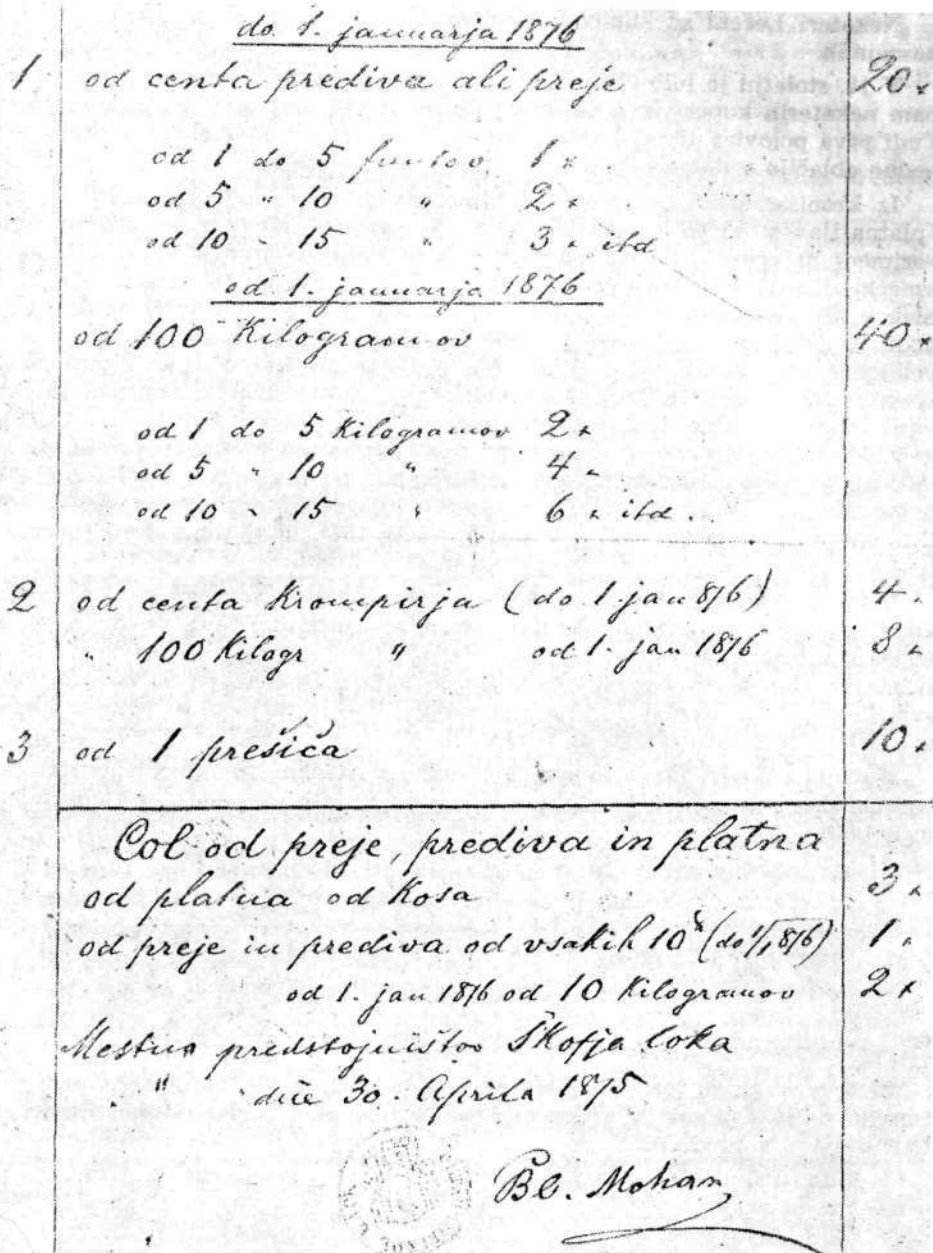 do 1. januarja 1876
1 od centa prediva ali preje 20 x
od 1 do 5 funtov 1 x
od 5 " 10 " 2 x
od 10 - 15 " 3 x itd
od 1. januarja 1876
od 100 Kilogramov 40 x
od 1 do 5 Kilogramov 2 x
od 5 " 10 " 4 "
od 10 - 15 " 6 x itd.
2 od centa Krompirja (do 1. jan 876) 4 "
" 100 Kilogr " od 1. jan 1876 8 x
3 od 1 prešiča 10 x
Col od preje, prediva in platna
od platna od Kosa 3 x
od preje in prediva od vsakih 10 (do 1/1 876) 1 "
od 1. jan 1876 od 10 Kilogramov 2 x
Mestno predstojništvo Škofja loka
" dne 30. Aprila 1875
Mohar